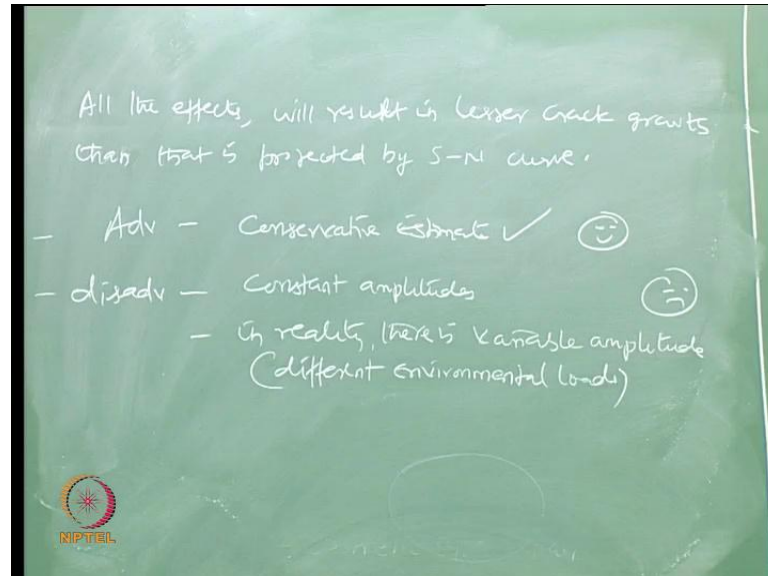 All the effects, will result in lesser crack growts
than that is projected by S-N curve.
- Adv - Conservative estimate ✓
- disadv - Constant amplitudes
- in reality, there is variable amplitude
(different environmental loads)
NPTEL